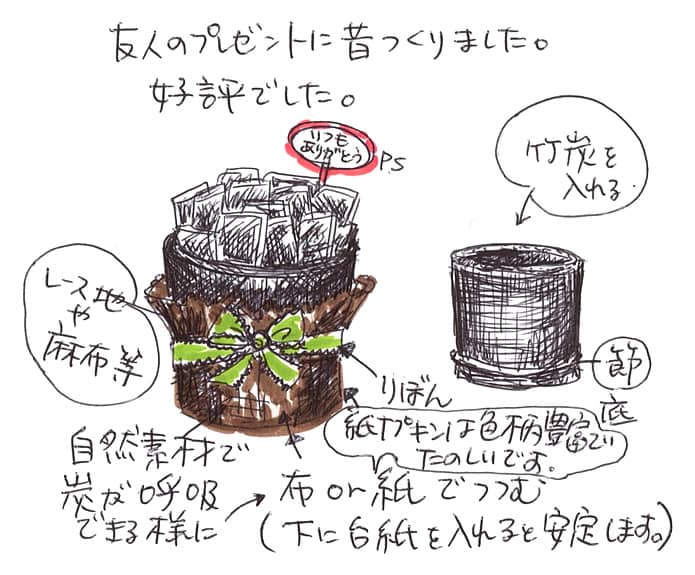 友人のプレゼントに昔つくりました。
好評でした。
いつも
ありがとう
P.S
竹炭を
入れる
レース地
や
麻布等
節
底
りぼん
紙ナプキンは色柄豊富で
たのしいです。
自然素材で
炭が呼吸
できる様に
布or紙でつつむ
(下に台紙を入れると安定します。)